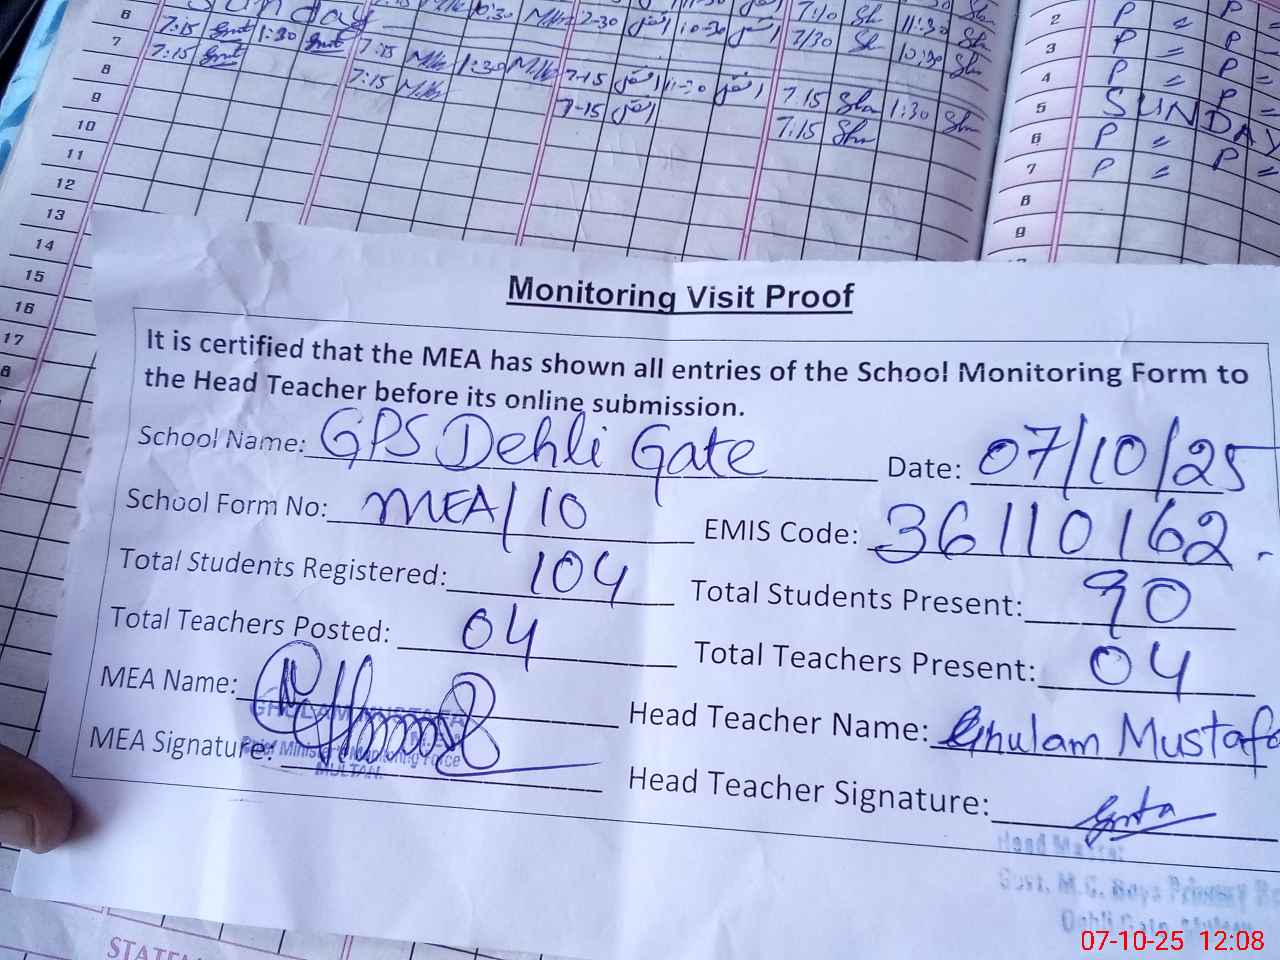 6 Sunday 10:30 2-30 10-30 7/10 Sh 11:30 Sha
7 7:15 Gmt 1:30 Gmt 7/30 Sh 10:30 Sha
8 7:15 Gmt 7:15 1:30 7-15 7:15 Sha 1:30 Sha
9 7:15 7-15 7:15 Sha
10
11
12
13
14
15
16
17
2 P = P
3 P = P =
4 P = P =
5 SUNDAY
6 P = P =
7 P = P =
8
9
Monitoring Visit Proof
It is certified that the MEA has shown all entries of the School Monitoring Form to
the Head Teacher before its online submission.
School Name: GPS Dehli Gate Date: 07/10/25
School Form No: MEA/10 EMIS Code: 36110162.
Total Students Registered: 104 Total Students Present: 90
Total Teachers Posted: 04 Total Teachers Present: 04
MEA Name: Head Teacher Name: Ghulam Mustafa
GHULAM MUSTAFA
MEA Signature: Head Teacher Signature:
Chief Minister's Monitoring Force
MULTAN.
Head Master
Govt. M.C. Boys Primary
Dehli Gate Multan
STATEM
07-10-25 12:08